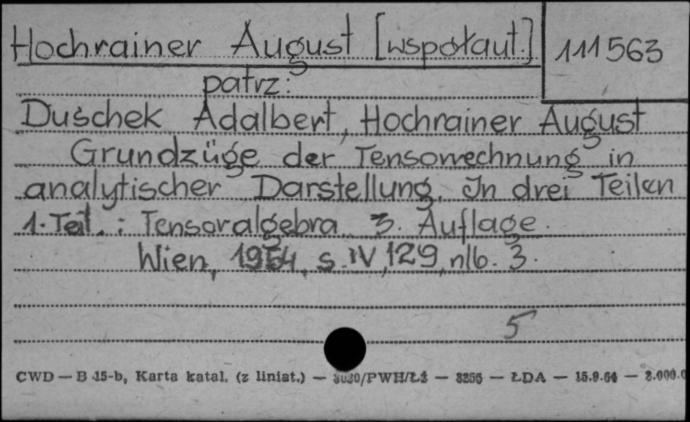 Hochrainer August [współaut.] 111563
patrz:
Duschek Adalbert, Hochrainer August
Grundzüge der Tensorrechnung in
analytischer Darstellung. In drei Teilen
1. Teil.: Tensoralgebra 3. Auflage.
Wien, 1954, s. IV, 129, nlb. 3.
5
CWD — B 15-b, Karta katal. (z liniat.) — /PWH/Łż — 3255 — ŁDA — 15.9.54 —